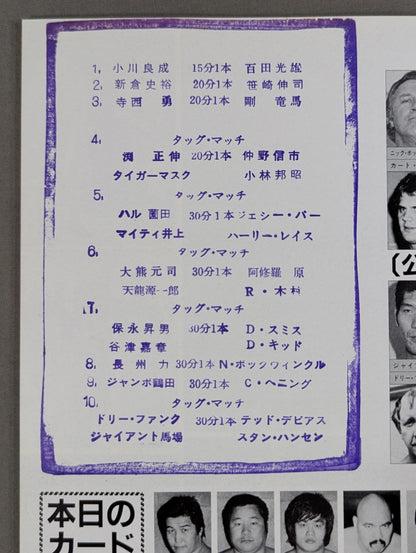 1, 小川良成 15分1本 百田光雄
2, 新倉史裕 20分1本 笹崎伸司
3, 寺西 勇 20分1本 剛 竜馬
4, タッグ・マッチ
渕 正伸 20分1本 仲野信市
タイガーマスク 小林邦昭
5, タッグ・マッチ
ハル薗田 30分1本 ジェシー・バー
マイティ井上 ハーリー・レイス
6, タッグ・マッチ
大熊元司 30分1本 阿修羅 原
天龍源一郎 R・木村
7, タッグ・マッチ
保永昇男 30分1本 D・スミス
谷津嘉章 D・キッド
8, 長州 力 30分1本 N・ボックウィンクル
9, ジャンボ鶴田 30分1本 C・ヘニング
10, タッグ・マッチ
ドリー・ファンク 30分1本 テッド・デビアス
ジャイアント馬場 スタン・ハンセン
本日の
カード
カート・
(公
ジャイ
ドリー・